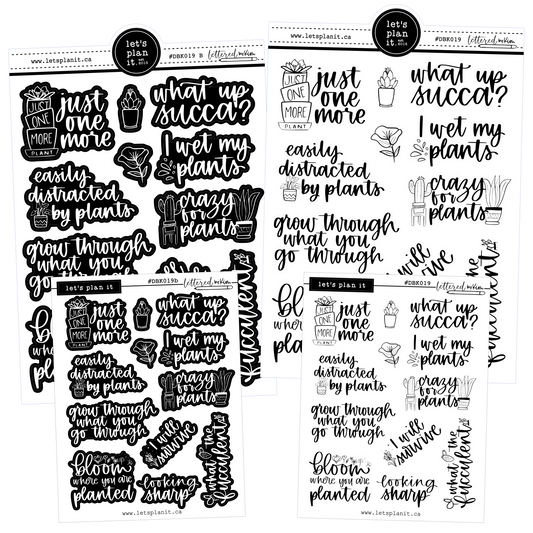 let's
plan
it.
www.letsplanit.ca
#DBK019 B
lettered
JUST
ONE
MORE
PLANT
just
one
more
what up
succa?
I wet my
plants
easily
distracted
by plants
crazy
for
plants
grow through
what you
go through
bloom
fucculent
let's
plan
it.
www.letsplanit.ca
#DBK019
lettered
JUST
ONE
MORE
PLANT
just
one
more
what up
succa?
I wet my
plants
easily
distracted
by plants
crazy
for
plants
grow through
what you
go through
I will
survive
the
fucculent
let's plan it
#DBK019b
lettered
JUST
ONE
MORE
PLANT
just
one
more
what up
succa?
I wet my
plants
easily
distracted
by plants
crazy
for
plants
grow through
what you
go through
I will
survive
bloom
where you are
planted
looking
sharp
what the
fucculent
www.letsplanit.ca
let's plan it
#DBK019
lettered
JUST
ONE
MORE
PLANT
just
one
more
what up
succa?
I wet my
plants
easily
distracted
by plants
crazy
for
plants
grow through
what you
go through
I will
survive
bloom
where you are
planted
looking
sharp
what the
fucculent
www.letsplanit.ca